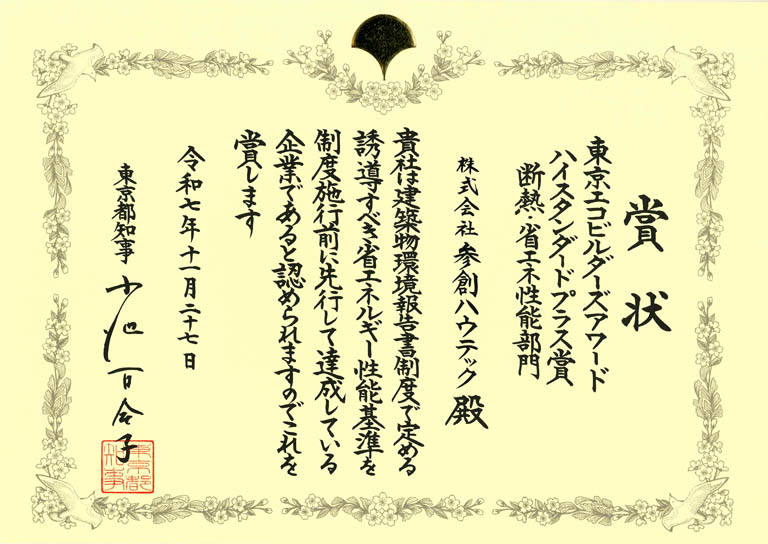 賞状
東京エコビルダーズアワード
ハイスタンダードプラス賞
断熱・省エネ性能部門
株式会社 参創ハウテック 殿
貴社は建築物環境報告書制度で定める
誘導すべき省エネルギー性能基準を
制度施行前に先行して達成している
企業であると認められますのでこれを
賞します
令和七年十一月二十七日
東京都知事 小池百合子
東京都知事